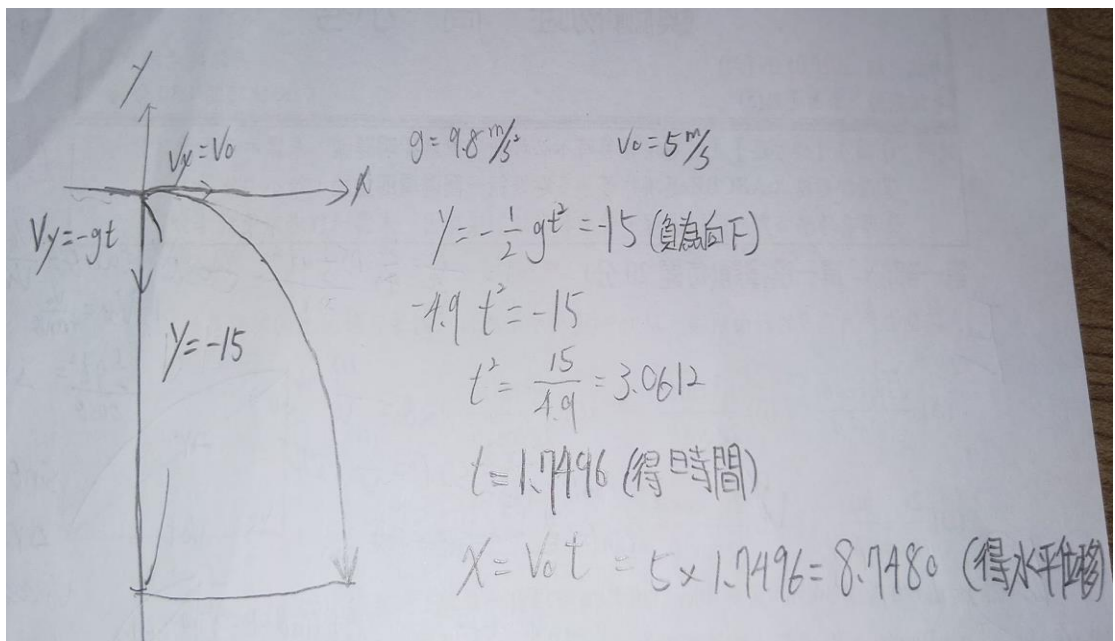 Y
Vx=V0
X
Vy=-gt
Y=-15
g=9.8 m/s² V0=5 m/s
Y=-1/2 gt²=-15 (負為向下)
-4.9 t²=-15
t²=15/4.9=3.0612
t=1.7496 (得時間)
X=V0t=5×1.7496=8.7480 (得水平位移)